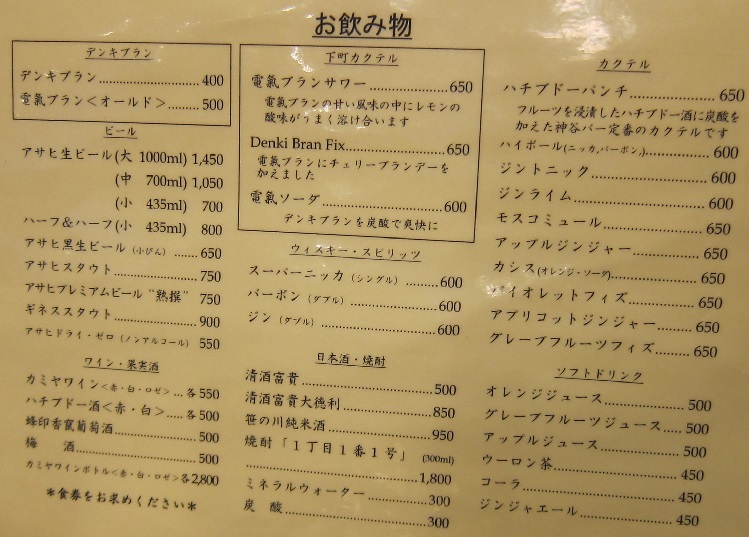 お飲み物
デンキブラン
デンキブラン……………………400
電氣ブラン＜オールド＞………500
ビール
アサヒ生ビール(大 1000ml) 1,450
(中 700ml) 1,050
(小 435ml) 700
ハーフ＆ハーフ(小 435ml) 800
アサヒ黒生ビール (小びん)………650
アサヒスタウト……………………750
アサヒプレミアムビール “熟撰” 750
ギネススタウト……………………900
アサヒドライ・ゼロ (ノンアルコール) 550
ワイン・果実酒
カミヤワイン＜赤・白・ロゼ＞…各 550
ハチブドー酒＜赤・白＞…各 500
蜂印香竄葡萄酒……………………500
梅 酒………………………………500
カミヤワインボトル＜赤・白・ロゼ＞各2,800
＊食券をお求めください＊
下町カクテル
電氣ブランサワー…………………650
電氣ブランの甘い風味の中にレモンの
酸味がうまく溶け合います
Denki Bran Fix……………………650
電氣ブランにチェリーブランデーを
加えました
電氣ソーダ…………………………600
デンキブランを炭酸で爽快に
ウィスキー・スピリッツ
スーパーニッカ (シングル)………600
バーボン (ダブル)…………………600
ジン (ダブル)………………………600
日本酒・焼酎
清酒富貴……………………………500
清酒富貴大徳利……………………850
笹の川純米酒………………………950
焼酎「１丁目１番１号」 (300ml)
……………………………………1,800
ミネラルウォーター………………300
炭 酸………………………………300
カクテル
ハチブドーパンチ…………………650
フルーツを浸漬したハチブドー酒に炭酸を
加えた神谷バー定番のカクテルです
ハイボール(ニッカ,バーボン,)………600
ジントニック………………………600
ジンライム…………………………600
モスコミュール……………………650
アップルジンジャー………………650
カシス(オレンジ・ソーダ)…………650
バイオレットフィズ………………650
アプリコットジンジャー…………650
グレープフルーツフィズ…………650
ソフトドリンク
オレンジジュース…………………500
グレープフルーツジュース………500
アップルジュース…………………500
ウーロン茶…………………………450
コーラ………………………………450
ジンジャエール……………………450